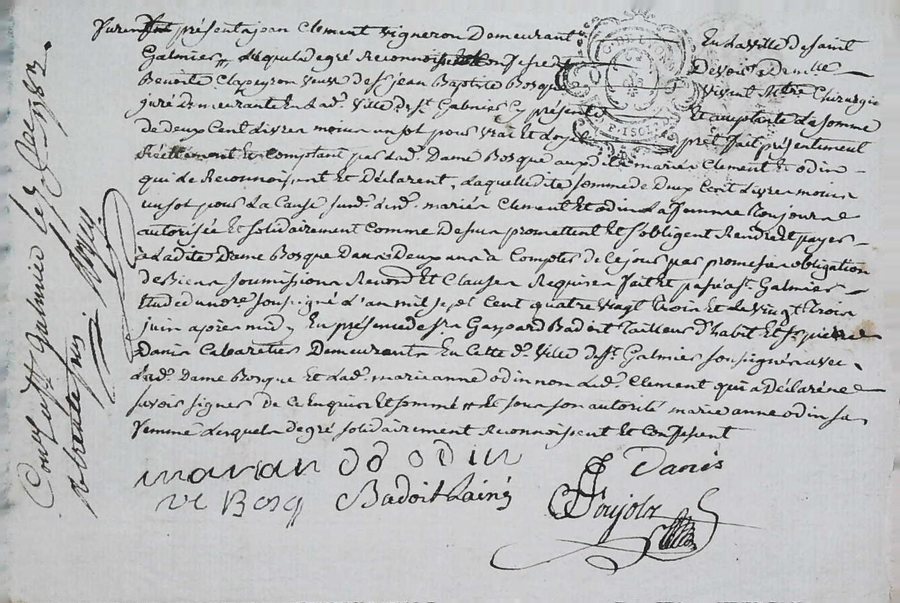 Furent présents jean Clement vigneron Demeurant En la ville de saint
Galmier, Lesquels de gré Reconnoissent et Confessent Devoir a Demlle
Benoite Clapeyron veuve de sr jean Baptiste Bosque vivant Mtre Chirurgien
juré Demeurante En lad. ville de st. Galmier Cy présente Et acceptante La somme
de deux Cent livres moins un sol pour vrai et Loyal prêt fait présentement
Réellement Et Comptant par Lad. Dame Bosque auxdits mariés Clement Et odin
qui Le Reconnoissent Et Déclarent, Laquelle dite somme de Deux Cent Livres moins
un sol pour La Cause susd. Lesd. mariés Clement Et odin La femme Toujours
autorisée Et solidairement Comme Dessus promettent Et s'obligent Rendre Et payer
a Ladite Dame Bosque Dans Deux ans à Compter de Ce jour par promesse obligation
de Biens soumissions Renond Et Clauses Requises fait Et passé a st. Galmier
Etude du nore soussigné L'an mil sept Cent quatre vingt Trois Et Le vingt Trois
juin après midy En présence de sr Gaspard Badoit Tailleur D'habit Et sr pierre
Danis Cabaretier Demeurants En Cette d. ville de st. Galmier soussignés avec
Lad. Dame Bosque Et Lad. marie anne odin non Led. Clement qui a Déclaré ne
savoir signer de Ce Enquis Et sommé # Et sous son autorité marie anne odin sa
femme Lesquels de gré solidairement Reconnoissent Et Confessent
marian odin
Danis
ve Bosq Badoit Lainé
Pujolz
Conlé a st Galmier Le
1783